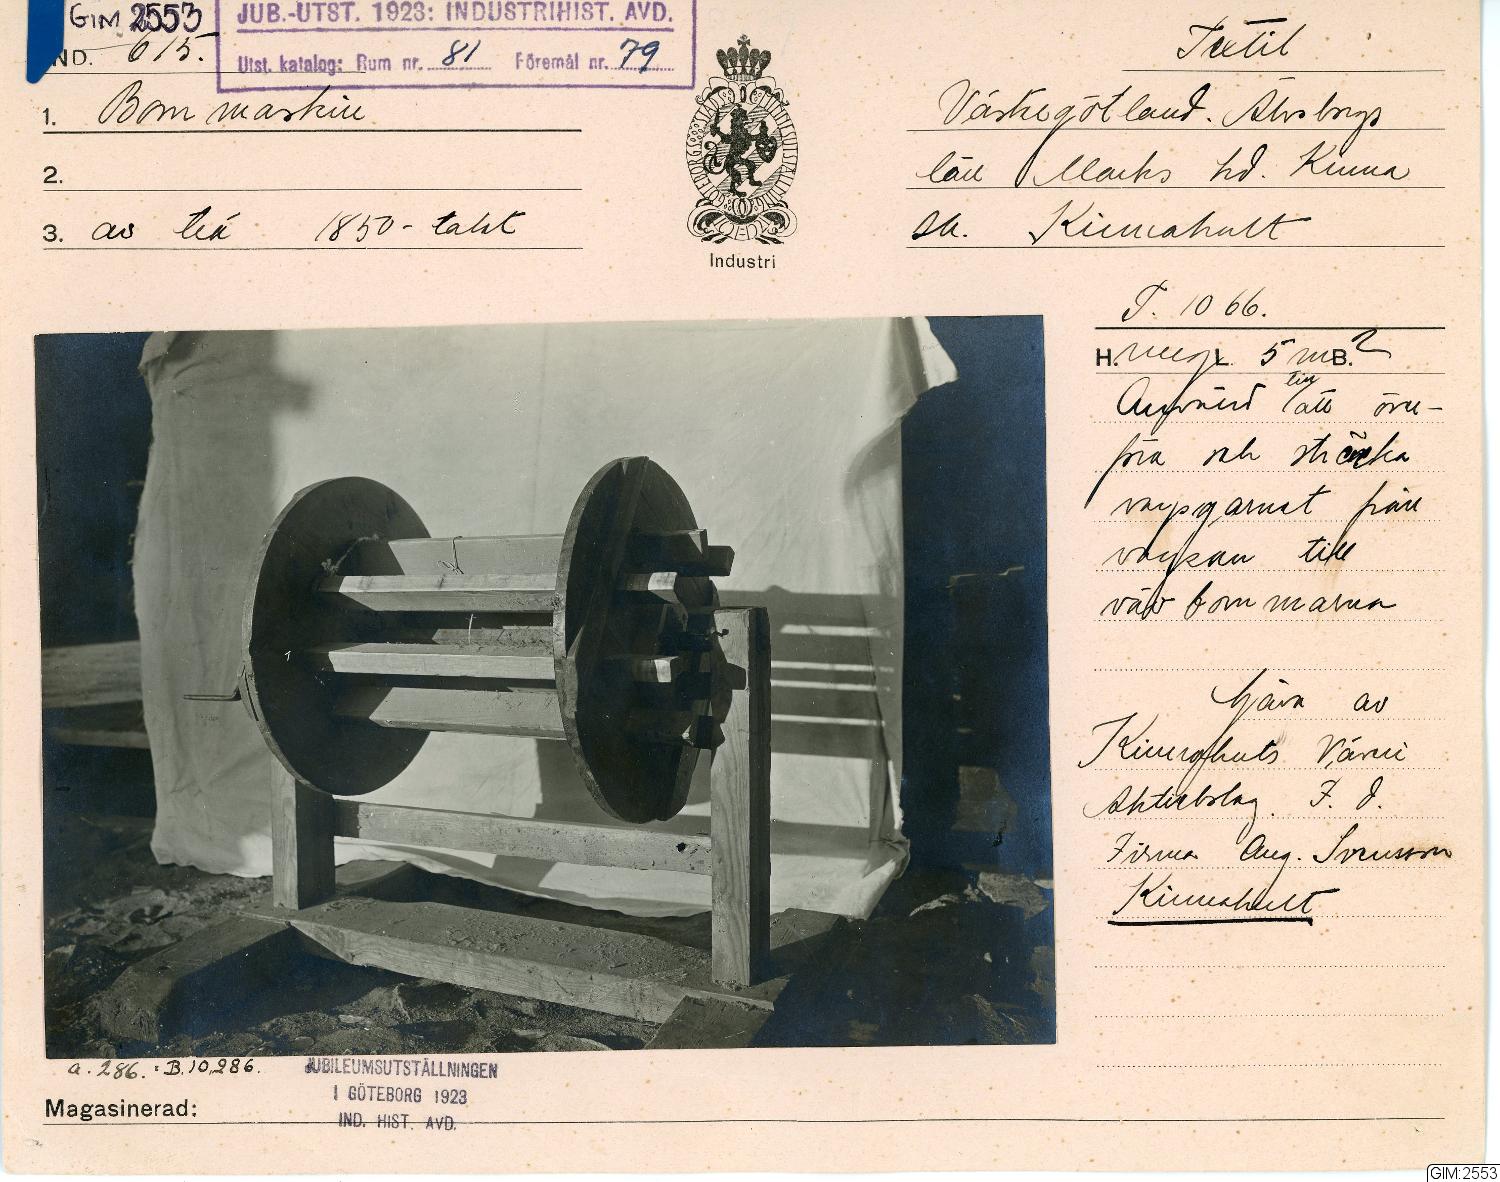 GIM 2553
IND. 615.
JUB.-UTST. 1923: INDUSTRIHIST. AVD.
Utst. katalog: Rum nr. 81 Föremål nr. 79
1. Bommaskin
2.
3. av trä 1850-talet
GÖTEBORGS STADS MINNESUTSTÄLLNING
Industri
Textil
Västergötland. Älvsborgs
län Marks hd. Kinna
sn. Kinnahult
T. 1066.
H. L. 5 m B. 2
Använd till att över-
föra och sträcka
varpgarnet från
varpan till
vävbommarna
Gåva av
Kinnahults Väveri
Aktiebolag F. d.
Firma Aug. Svensson
Kinnahult
a. 286. : B. 10,286.
JUBILEUMSUTSTÄLLNINGEN
I GÖTEBORG 1923
IND. HIST. AVD.
Magasinerad:
GIM:2553